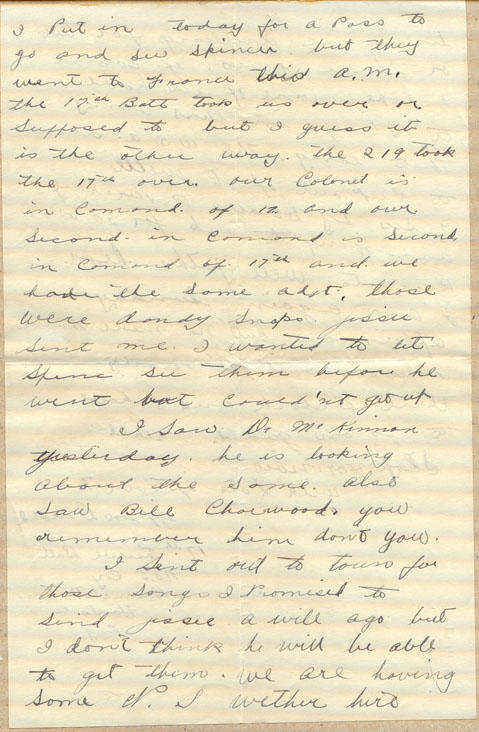 I Put in today for a Pass to
go and see Spincer. but they
went to France this a.m.
the 17th Batt took us over or
supposed to but I guess it
is the other way. the 219 took
the 17th over. our Colonel is
in Comand. of 17. and our
Second. in Comand is Second
in Comand of 17th and. we
have the same adjt. those
were dandy snaps. jessie
sent me. I wanted to let
Spence see them before he
went but could'nt get up
I Saw Dr McKinnon
yesterday. he is looking
about the same. also
saw Bill Charwood. you
remember him dont you.
I sent out to town for
those songs I Promised to
send jessie a will ago but
I don't think he will be able
to get them. we are having
some N. S wether here